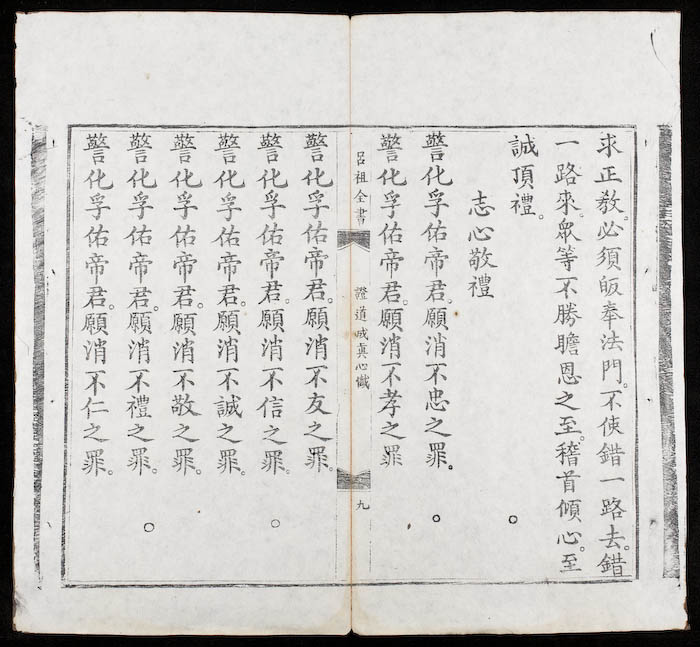 求正教。必須皈奉法門。不使錯一路去。錯
一路來。眾等不勝瞻恩之至。稽首傾心。至
誠頂禮。
志心敬禮
警化孚佑帝君。願消不忠之罪。
警化孚佑帝君。願消不孝之罪
呂祖全書
證道成真心懺
九
警化孚佑帝君。願消不友之罪。
警化孚佑帝君。願消不信之罪。
警化孚佑帝君。願消不誠之罪。
警化孚佑帝君。願消不敬之罪。
警化孚佑帝君。願消不禮之罪。
警化孚佑帝君。願消不仁之罪。